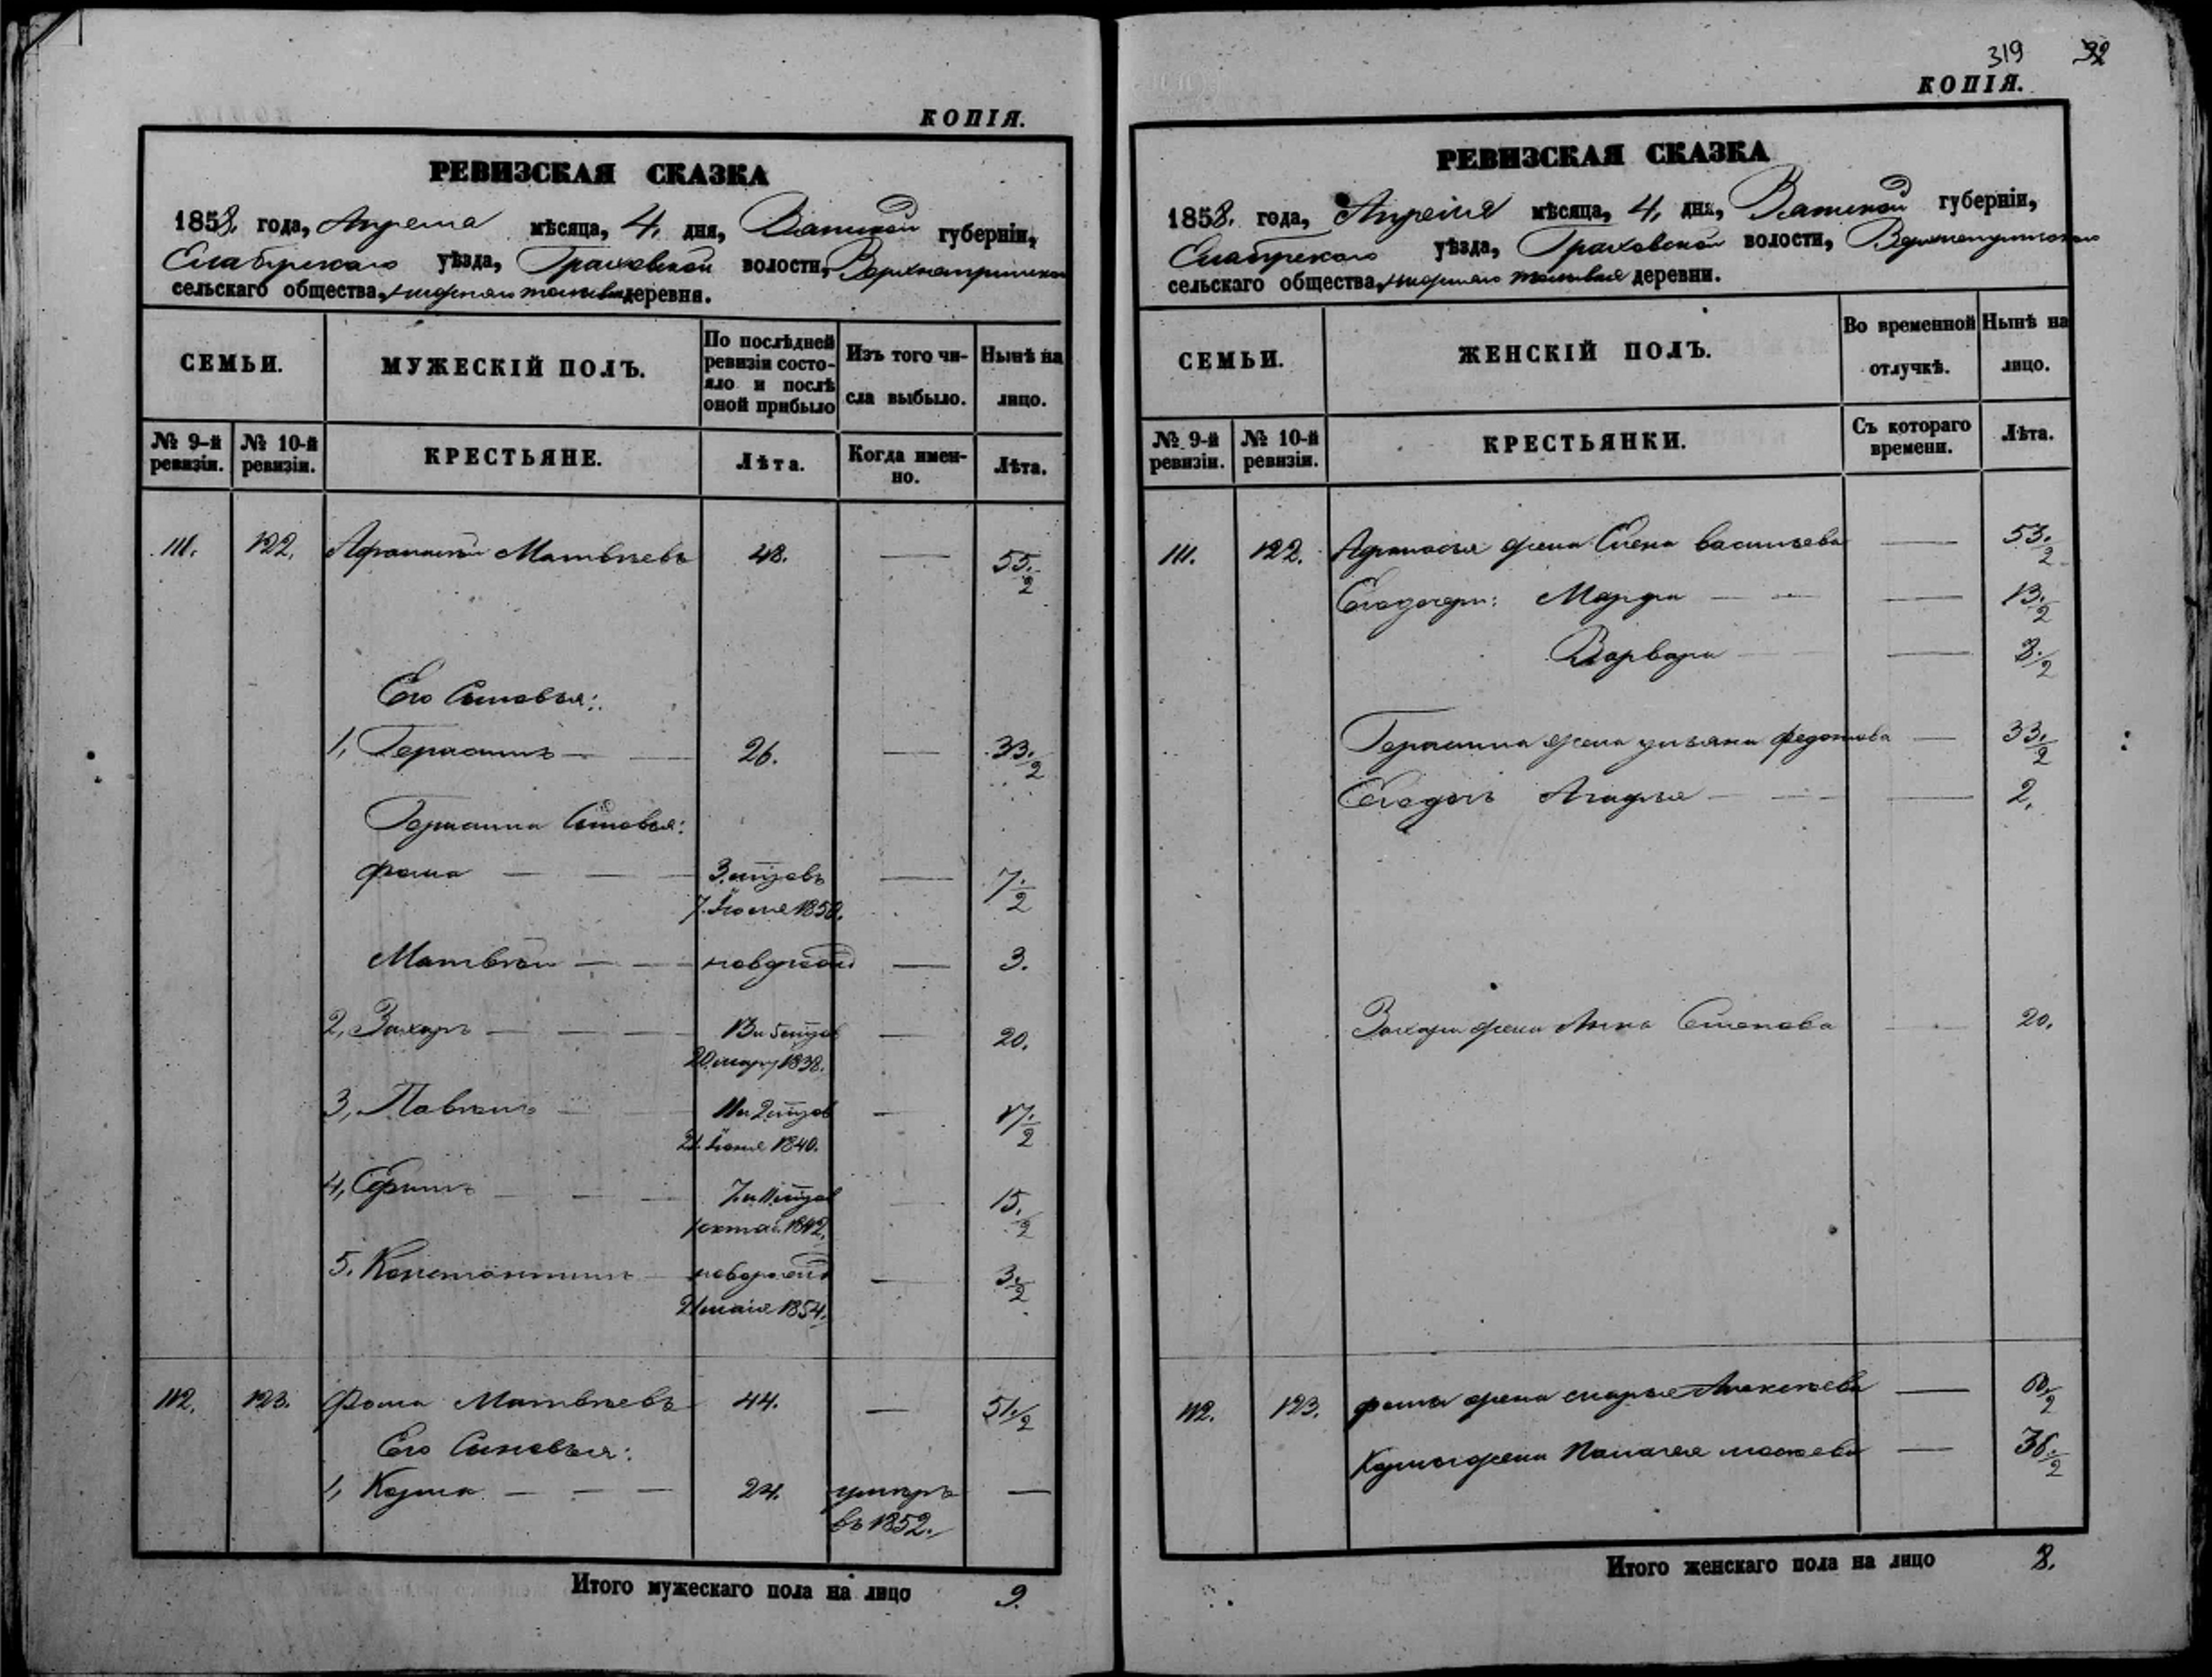 КОПІЯ.
РЕВИЗСКАЯ СКАЗКА
1858. года, Апреля мѣсяца, 4. дня, Вятской губерніи,
Елабужскаго уѣзда, Граховской волости,
сельскаго общества, деревни.
СЕМЬИ.
МУЖЕСКІЙ ПОЛЪ.
По послѣдней ревизіи состояло и послѣ оной прибыло
Изъ того числа выбыло.
Нынѣ на лицо.
№ 9-й ревизіи.
№ 10-й ревизіи.
КРЕСТЬЯНЕ.
Лѣта.
Когда именно.
Лѣта.
111. 122. Афанасій Матвѣевъ 48. — 55 1/2
Его Сыновья:
1, Герасимъ — — 26. — 33 1/2
Герасима Сыновья:
Фома — — — 3. — 7 1/2
7. 1850.
Матвѣй — — — 3.
2, Захаръ — — — 13 и 5 — 20.
20 1838.
3, Павелъ — — 11 и 2 — 17 1/2
1840.
4, — — 7 и 11 15 1/2
1842.
5. Константинъ — — 3 1/2
21 маія 1854.
112. 123. Фома Матвѣевъ 44. — 51 1/2
Его Сыновья:
1, Козма — — — 24. умеръ —
въ 1852.
Итого мужескаго пола на лицо 9.
319 32
КОПІЯ.
РЕВИЗСКАЯ СКАЗКА
1858. года, Апреля мѣсяца, 4. дня, Вятской губерніи,
Елабужскаго уѣзда, Граховской волости,
сельскаго общества, деревни.
СЕМЬИ.
ЖЕНСКІЙ ПОЛЪ.
Во временной отлучкѣ.
Нынѣ на лицо.
№ 9-й ревизіи.
№ 10-й ревизіи.
КРЕСТЬЯНКИ.
Съ котораго времени.
Лѣта.
111. 122. Афанасья жена Елена Васильева — 53 1/2
Его дочери: Марфа — — — 13 1/2
Варвара — — — 3 1/2
Герасима жена Ульяна Федотова — 33 1/2
Его дочь Агафья — — — 2.
Захара жена Анна — 20.
112. 123. Фомы жена Марья Алексѣева —
Козмы жена Палагея — 36 1/2
Итого женскаго пола на лицо 8.